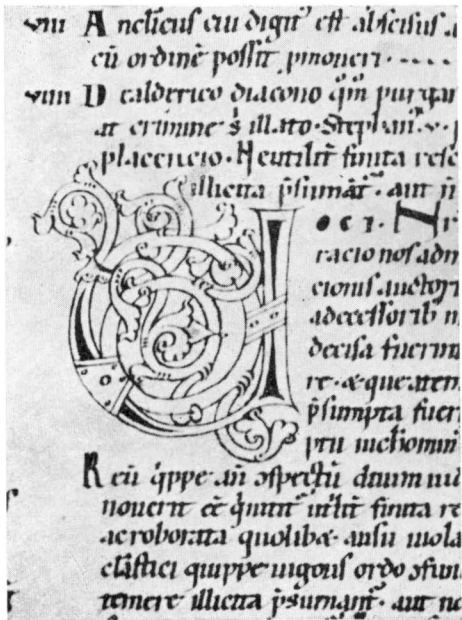 viii A nelicus cui digit᾽ est abscisus a
cū ordinē possit pmoneri · ....
viiii D ealderico diacono qm̄ purgar
at crimine s̄ illato · Stephan᾽ · v · p
placencio · Ne utilit̄ finita resc
illicita p̄sumāt᾽ · aut n̄
oci ·
racio nos adm
cionis auctori
adecessorib n
decisa fuerin
re · æque atem
p̄sumpta fuer
ptu
R eū q̄ppe an̄ ɔspectū diuin
nouerit eē q̄ utilit̄ finita re
ac roborata quolibæ · ausu uiola
clāstici quippe uigoris ordo ɔfun
temere illicita p̄sumant᾽ · aut nō